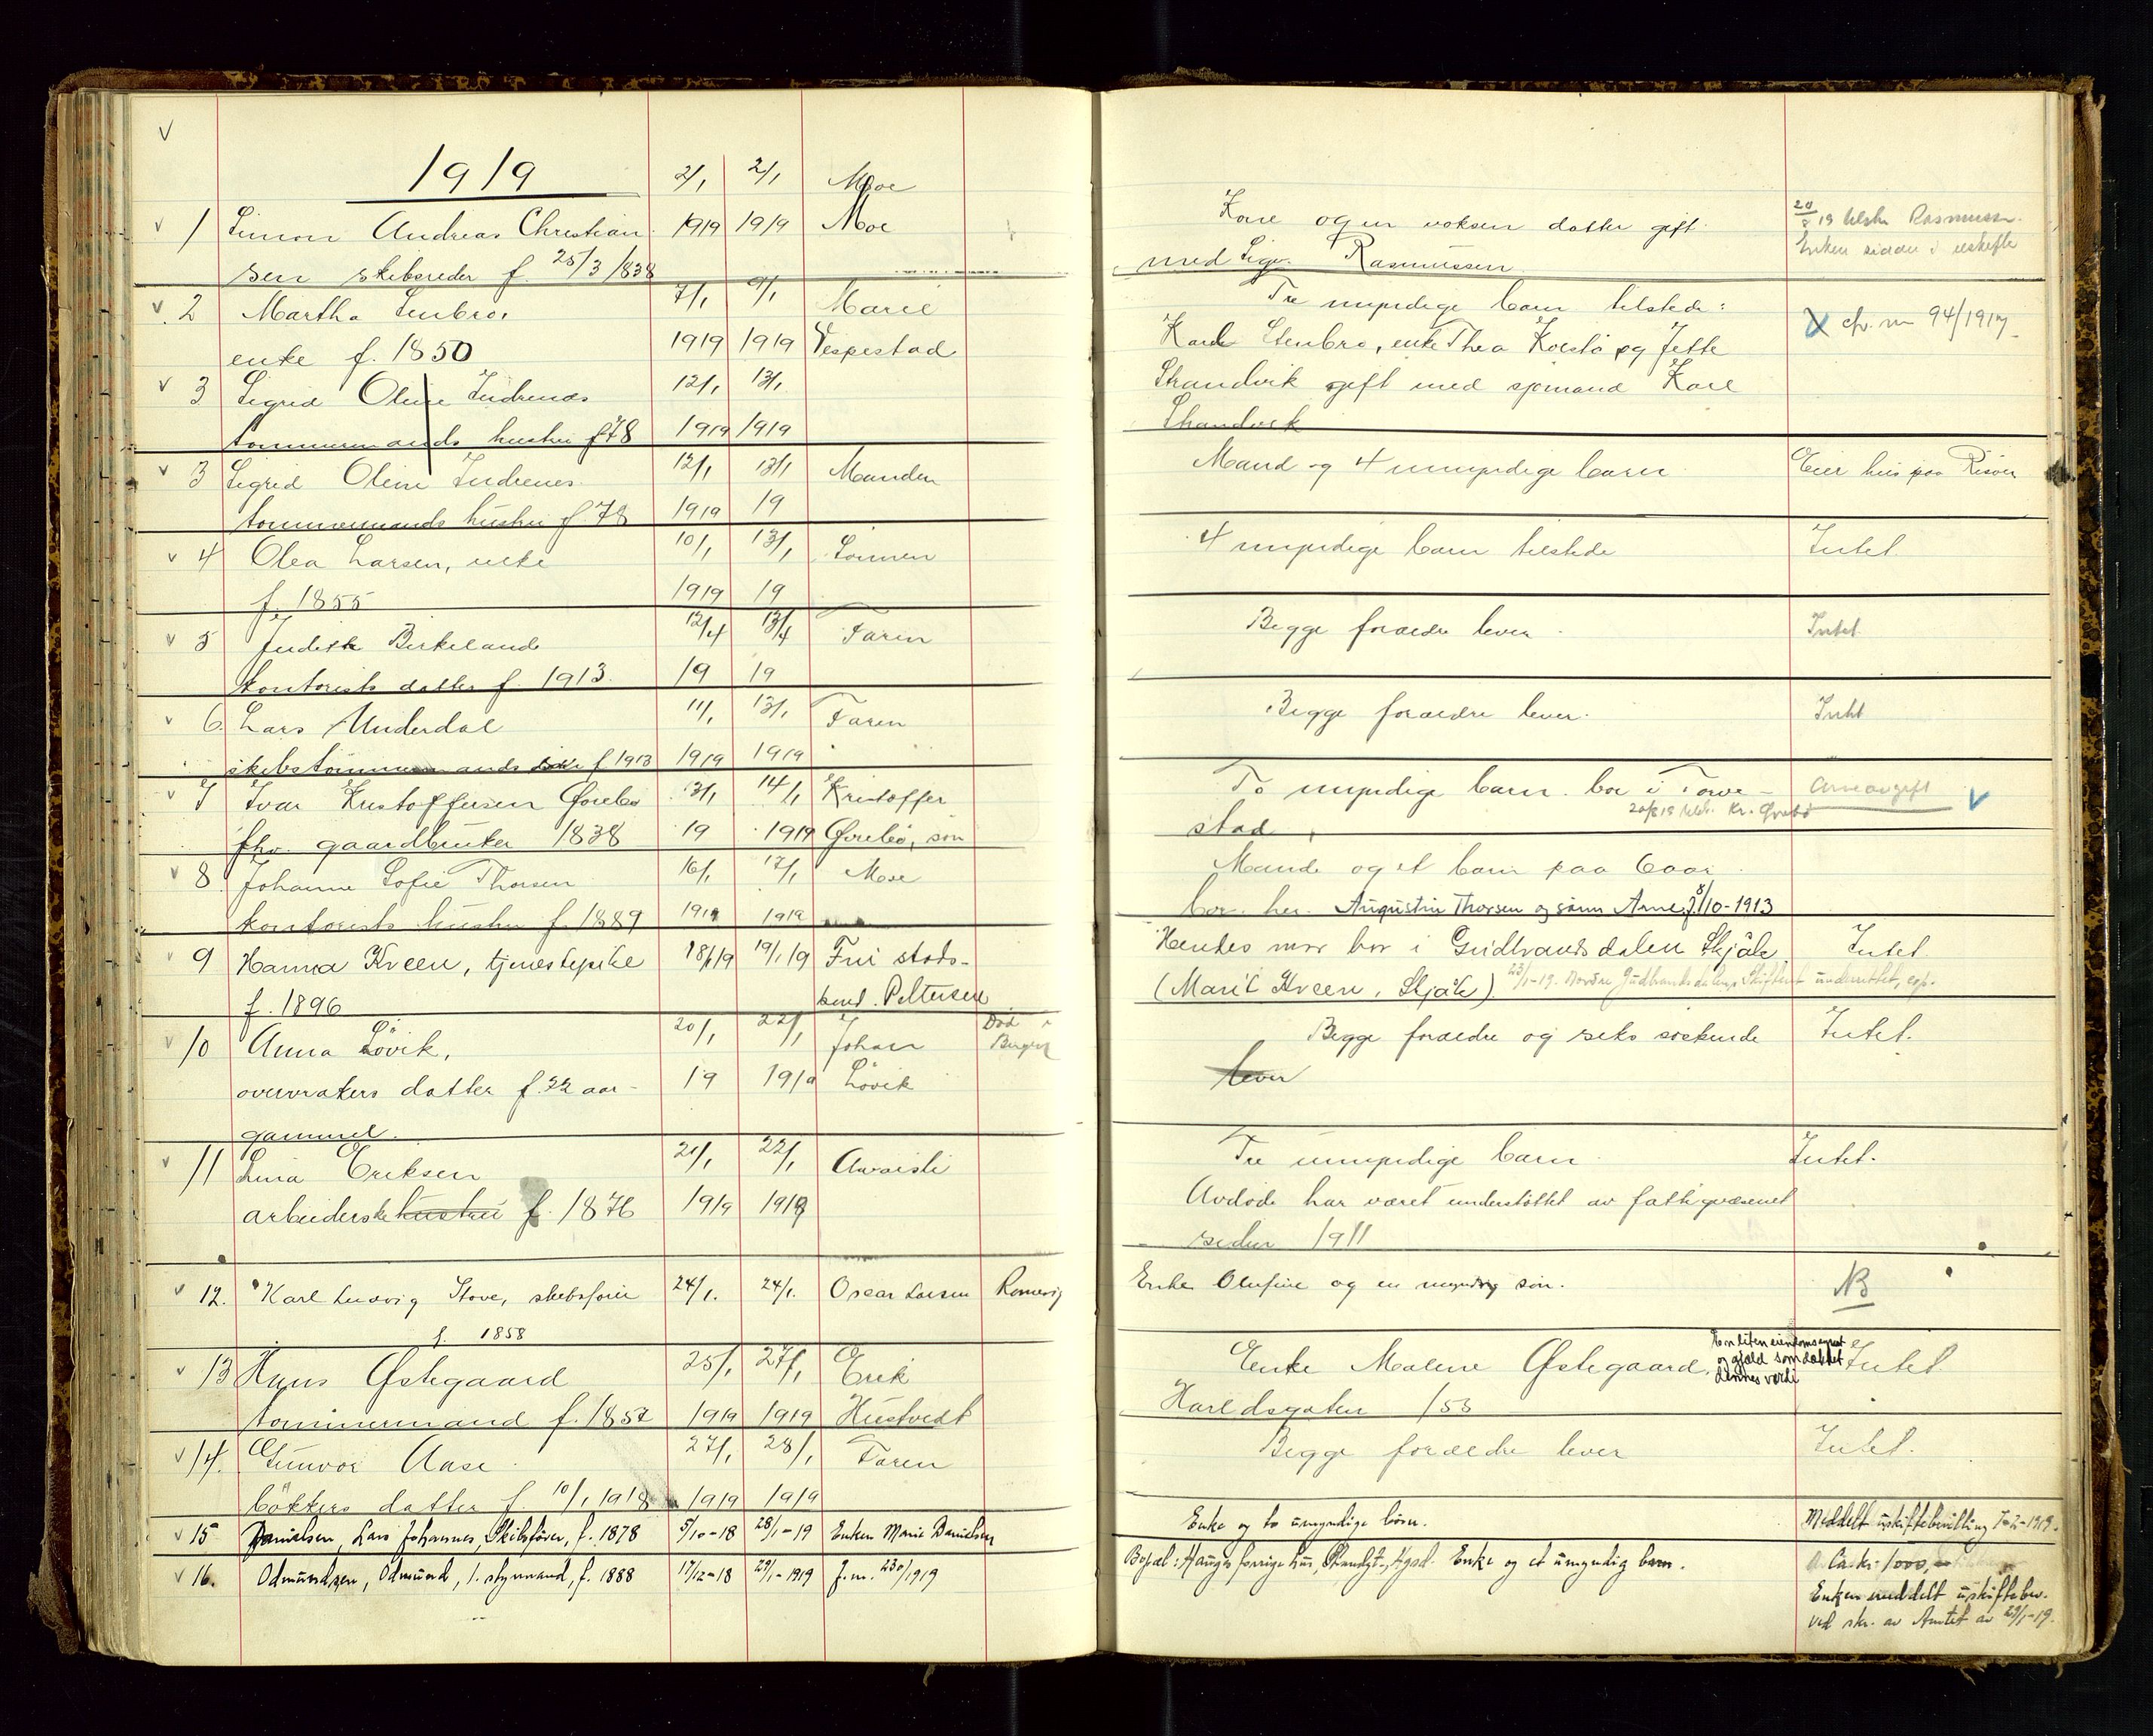 1919
2/1 2/1 Moe
1 Simon Andreas Christian 1919 1919 Moe
sen skibsreder f. 25/3 1838
2 Martha Stenbro, 7/1 9/1 Marie
enke f. 1850 1919 1919 Vespestad
3 Sigrid Oline Indrenes 12/1 13/1
tømmermands hustru f 78 1919 1919
3 Sigrid Oline Indrenes 12/1 13/1 Manden
tømmermands hustru f. 78 1919 19
4 Olea Larsen, enke 10/1 13/1 Sønnen
f. 1855 1919 19
5 Judith Birkeland 12/4 13/4 Faren
kontorists datter f. 1913. 19 19
6. Lars Underdal 11/1 13/1 Faren
skibstømmermands f 1913 1919 1919
7 Ivar Kristoffersen Øvrebø 13/1 14/1 Kristoffer
fhv. gaardbruker 1838 19 1919 Øvrebø, søn
8. Johanne Sofie Thorsen 16/1 17/1 Moe
kontorists hustru f. 1889 1919 1919
9 Hanna Kveen, tjenestepike 18/1 19 19/1 19 Fru stads-
f. 1896 Peltersen
10 Anna Løvik, 20/1 22/1 Johan Død i Bergen
overvrakers datter f. 22 aar- 19 1919 Løvik
gammel.
11 Lina Eriksen 21/1 22/1 Avaisti
arbeiderske hustru f. 1876 1919 1919
12. Karl Ludvig Stove, skibsfører 24/1. 24/1. Oscar Larsen
f. 1858
13 Hans Østegaard 25/1 27/1 Erik
tømmermand f. 1857 1919 1919 Hustvedt
14. Gunvor Aase 27/1 28/1 Faren
bøkkers datter f. 10/1 1918 1919 1919
15 Danielsen, Lars Johannes, Skibsfører, f. 1878 5/10-18 28/1-19 Enken Marie Danielsen
16. Odmundsen, Odmund, 1. styrmand, f. 1888 17/12-18 29/1-1919 J.nr. 230/1919
Kone og en voksen datter gift
med Sigv. Rasmussen
Rasmussen.
Enken sidder i uskifte
Tre myndige barn tilstede:
Karl Stenbro, enke Thea Kolstø og Jette
cfr. nr 94/1917
Strandvik gift med sjømand Karl
Strandvik
Mand og 4 umyndige barn Eier hus paa Risøen
4 myndige barn tilstede Intet
Begge forældre lever. Intet
Begge forældre lever. Intet
To myndige barn. bor i Torve- Arveavgift
stad. Kr. Øvrebø
Mand og et barn paa 6 aar
bor her. Augustin Thorsen og sønn Arne f. 8/10-1913
Hendes mor bor i Gudbrandsdalen Skjåk Intet
(Marit Kveen, Skjåk) 23/1-19. Nordre Gudbrandsdalens Skifteret underrettet, exp.
Begge forældre og seks søskende Intet.
lever
Tre umyndige barn Intet.
Avdøde har været understøttet av fattigvæsenet
siden 1911
Enke Olufine og en myndig søn. NB
Enke Malene Østegaard, Intet
En liten eiendomsrest
og gjæld som dækket
dennes værdi
Haraldsgaten 155
Begge forældre lever Intet.
Enke og to umyndige børn. Meddelt uskiftebevilling 7-2-1919.
Bopæl: Hauges forrige hus, Strandgt., Hgsd. Enke og et umyndig barn. Ca. kr. 1000,-
Enken meddelt uskiftebev.
ved skr. av Amtet av 29/1-19.